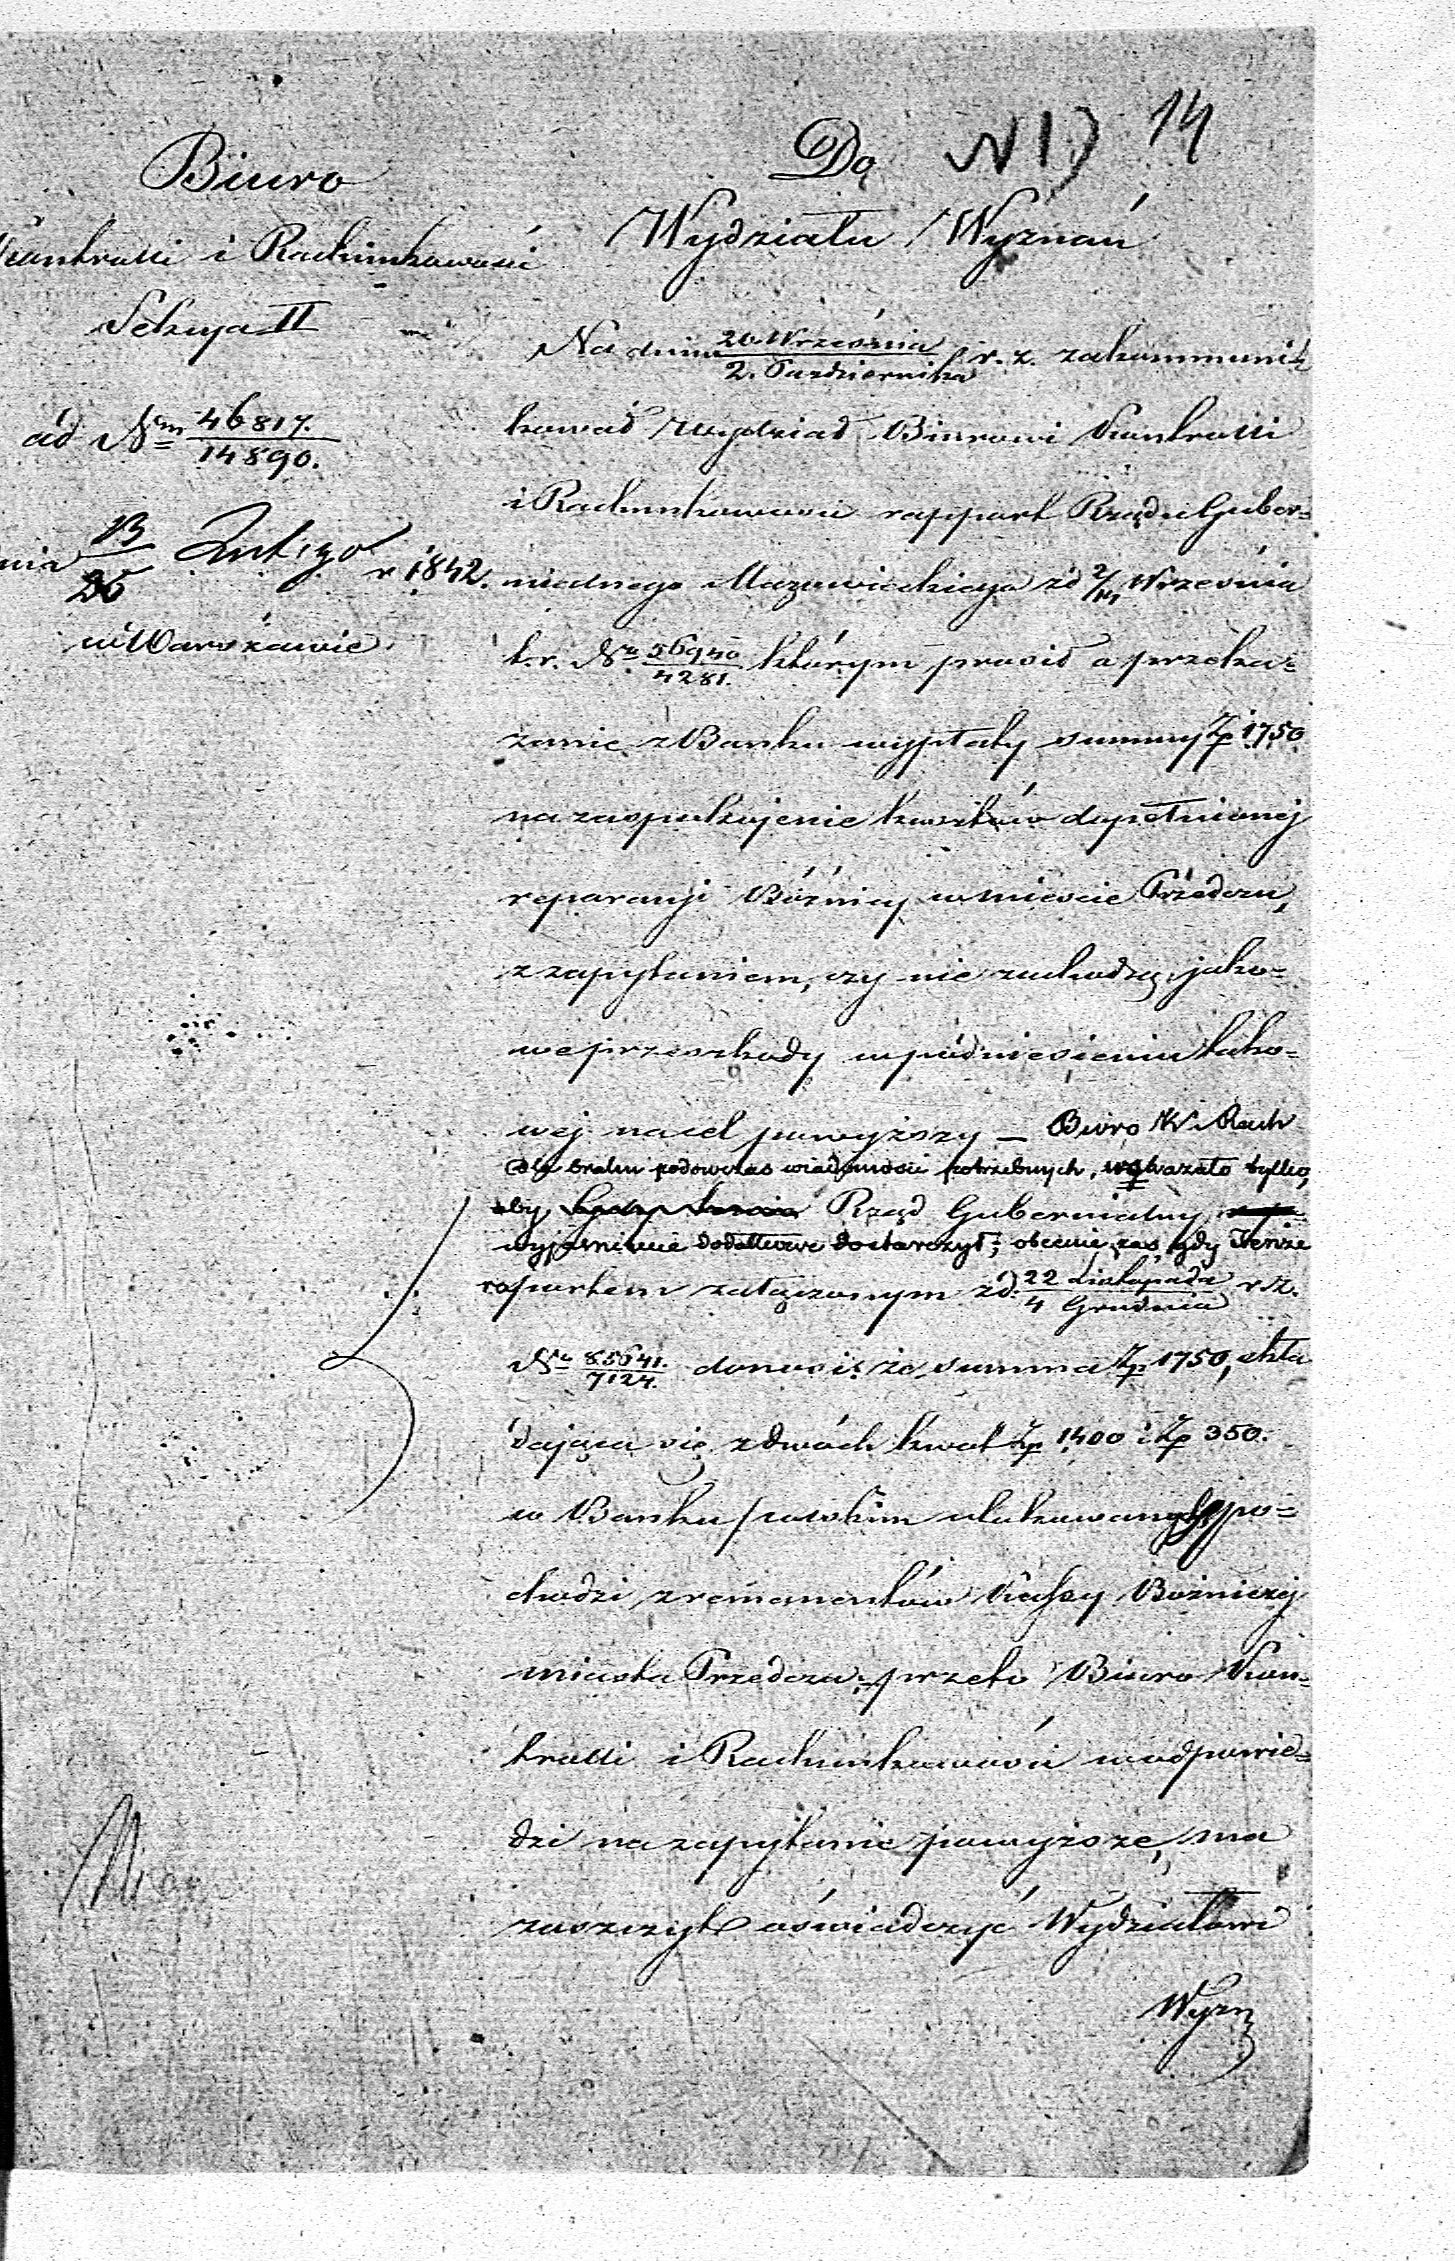 14
N 1)
Biuro
Kontrolli i Rachunkowości
Sekcya II
ad Nm 46817.
14890.
nia 13 Lutego r 1842.
25
w Warszawie
Do
Wydziału Wyznań
Na dniu 20 Września r. z. zakommuni=
2. Października
kował Wydział Biurowi Kontrolli
i Rachunkowości rapport Rządu Guber=
nialnego Mazowieckiego z d 2/14 Września
t. r. No 56940 którym prosił o przeka=
4281.
zanie z Banku wypłaty summy Zp 1750
na zaspokojenie kosztów dopełnionej
reparacyi Bóżnicy w mieście Przedczu,
z zapytaniem, czy nie zachodzą jako=
we przeszkody w podniesieniu tako=
wej na cel powyższy – Biuro K i Rach
dla braku podówczas wiadomości potrzebnych, wskazało tylko,
aby Rząd Gubernialny
wyjaśnienie dodatkowe dostarczył; obecnie zas gdy Tenże
raportem załączonym z d. 22 Listopada r. z.
4 Grudnia
No 85641. donosi: że summa Zp 1750, skła
7124.
dająca się z dwóch kwot Zp 1400 i Zp 350.
w Banku Polskim ulokowanych po=
chodzi z remanentów Kassy Bożniczej
miasta Przedcza; przeto Biuro Kon=
trolli i Rachunkowości w odpowie=
dzi na zapytanie powyższe, ma
zaszczyt oświadczyć Wydziałowi
Wyzn